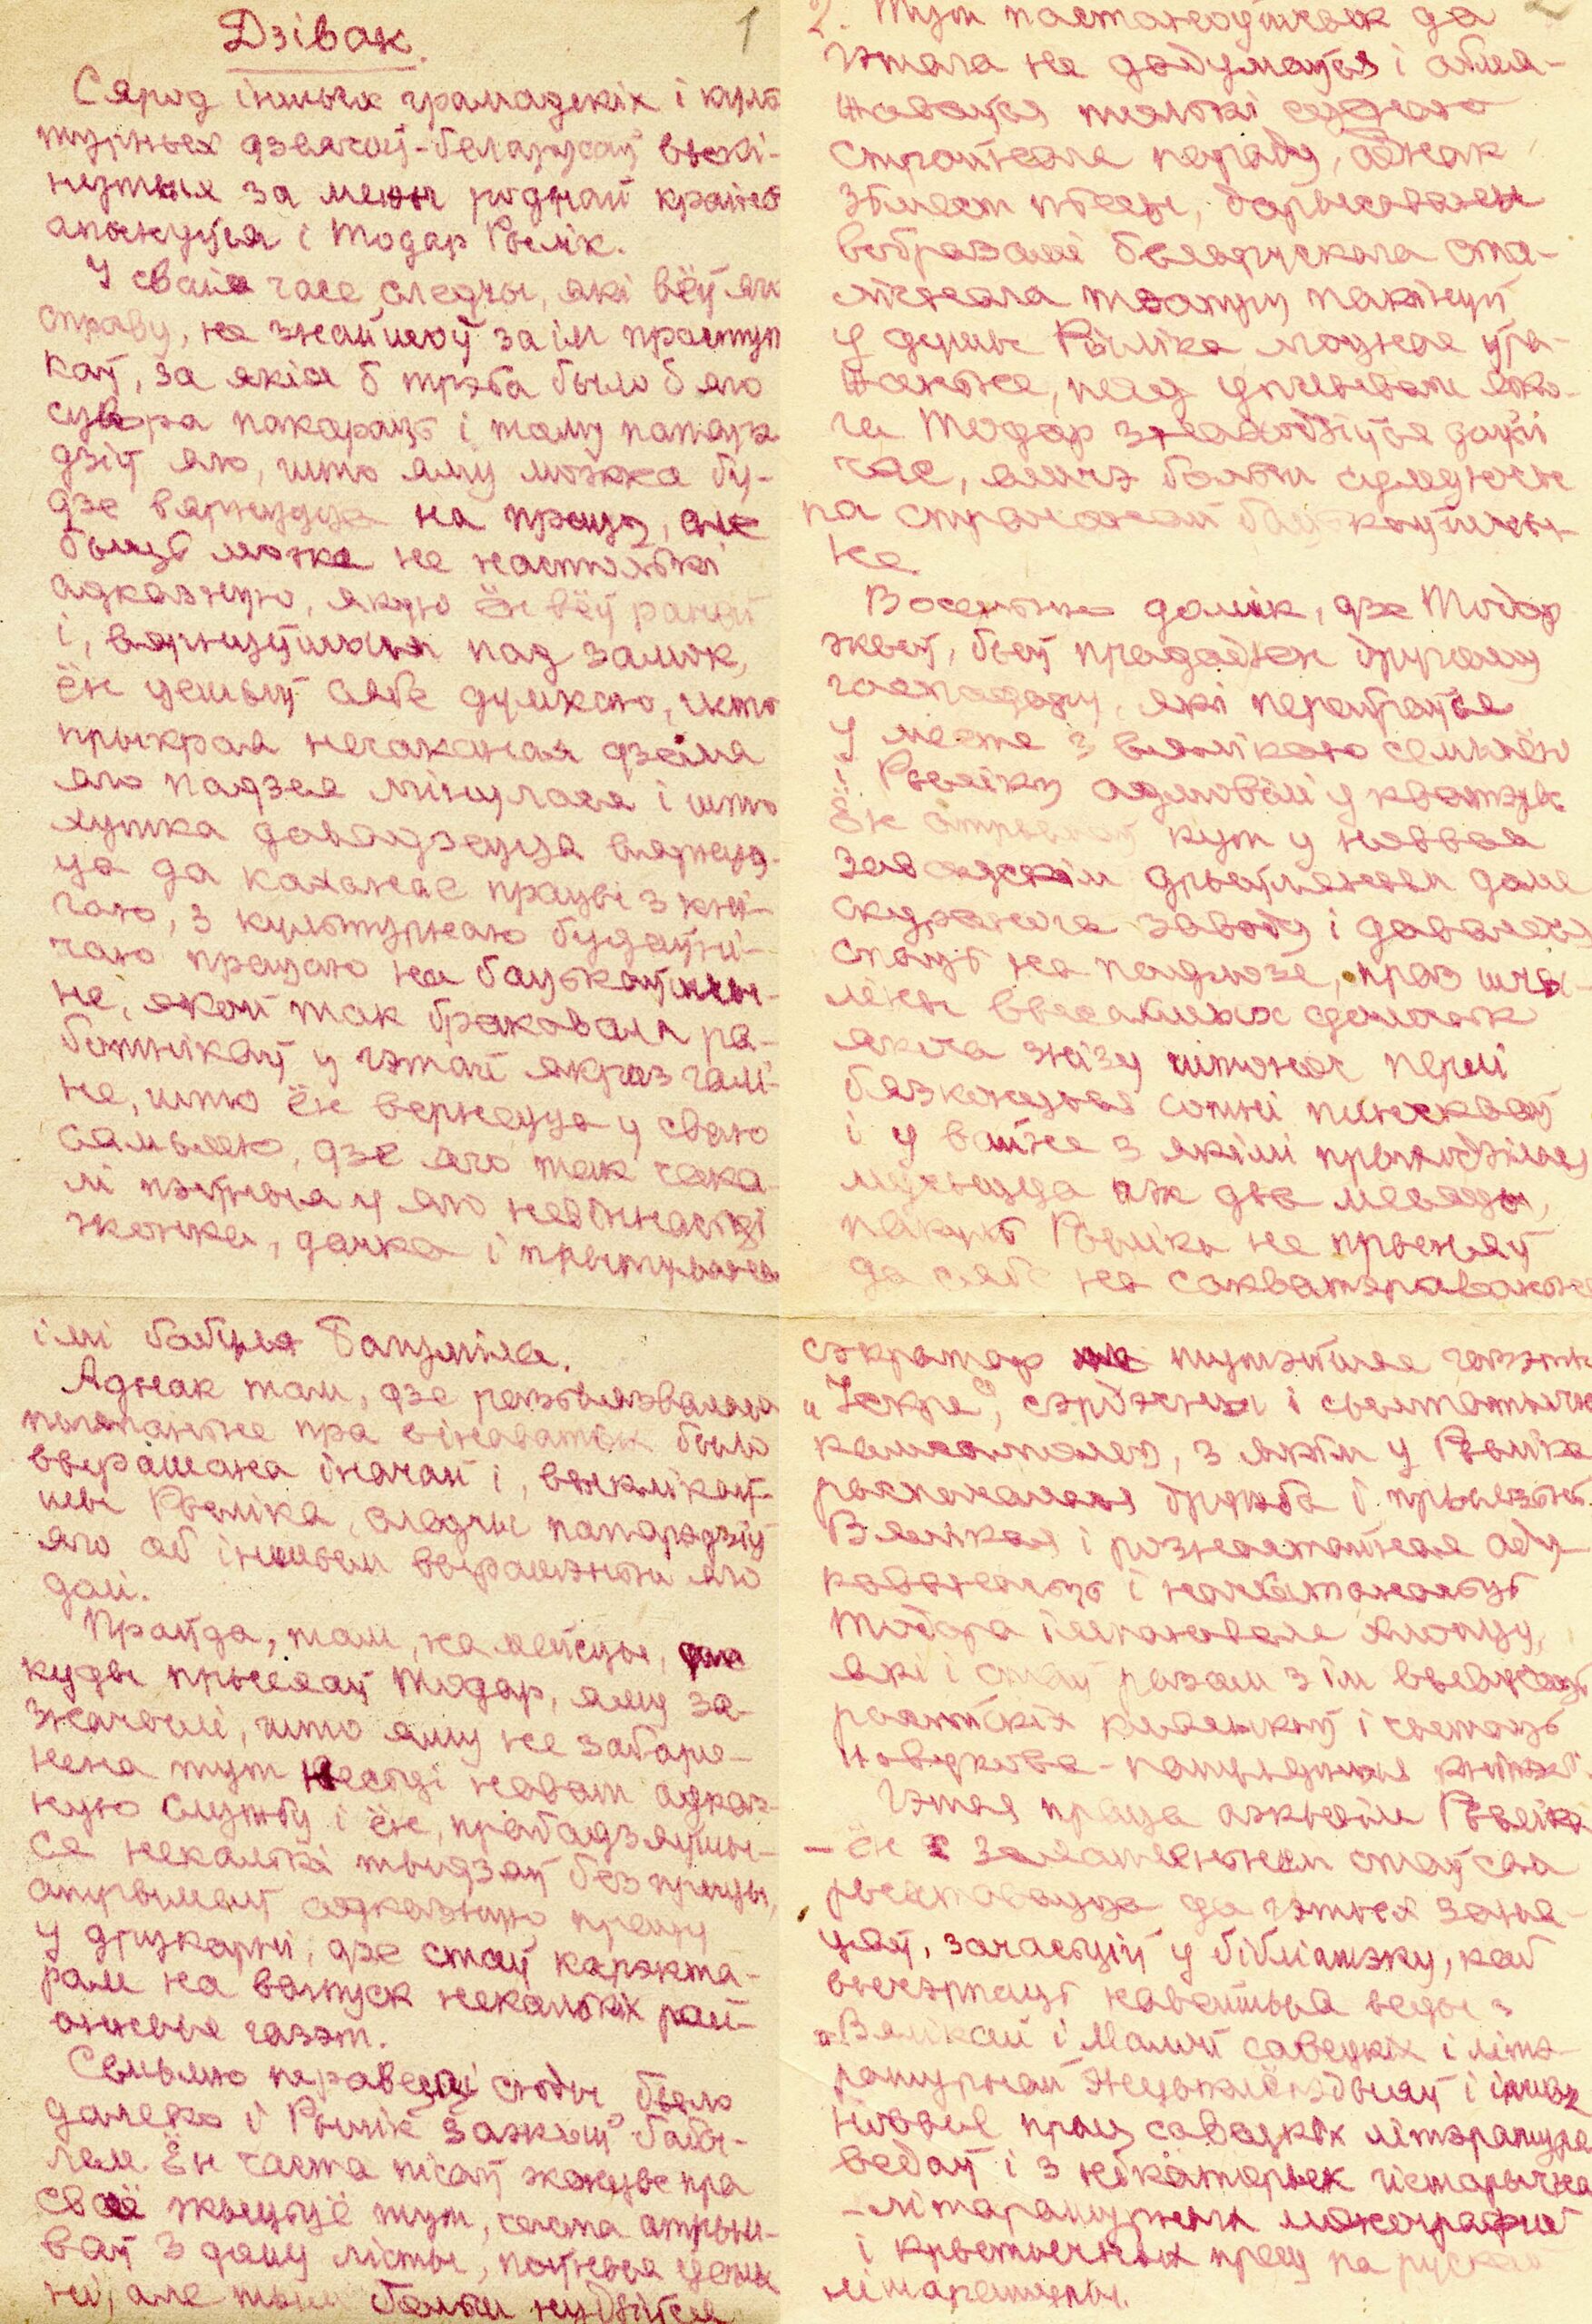 Дзівак.
1
Сярод іншых грамадскіх і куль
турных дзеячоў-беларусаў выкі-
нутых за межы роднай краіны
апынуўся і Тодар Рылік.
У свайе часе следчы, які вёў яго
справу, не знайшоў за ім праступ
каў, за якія б трэба было б яго
сувора пакараць і таму папярэ
дзіў яго, што яму можна бу-
дзе вярнуцца на працу, але
быць можа не настолькі
адказную, якую ён вёў раней
і, вярнуўшыся пад замок,
ён цешыў сябе думкаю, што
прыкрая нечаканая дзеля
яго падзея мінулася і што
хутка давядзецца вярнуц-
ца да каханае працы з кні-
гаю, з культурнаю будаўні-
чаю працаю на бацькаўшчы-
не, якой так бракавала ра-
ботнікаў у гэтай якраз галі-
не, што ён вернецца у сваю
сямьлю, дзе яго так чака
лі пэўныя у яго невіннасьці
жонка, дачка і прытуленая
імі бабуля Багуміла.
Аднак там, дзе разьвязвалася
пытаньне пра вінаватых было
вырашана іначай і, выклікаў-
шы Рыліка, следчы папярэдзіў
яго аб іншым вырашэньні яго
долі.
Праўда, там, на мейсцы,
куды прыехаў Тодар, яму за-
значылі, што яму не забаро-
нена тут несьці нават адказ-
ную службу і ён, прабадзяўшы-
ся некалькі тыдзяў без працы,
атрымаў адказную працу
у друкарні, дзе стаў карэкта-
рам на выпуск некалькіх рай-
онных газэт.
Семьлю перавезьці сюды было
далёка і Рылік зажыў бабы-
лем. Ён часта пісаў жонцы пра
сваё жыцьцё тут, часта атрым-
ваў з дому лісты, поўныя цеплы
ні, але тым больш нудзіўся
2. Тут пастаноўшчык да
гэтага не дадумаўся і абмя-
жаваўся толькі аднаю
страйнаю пераду, аднак
зьмест пьесы, дарысаваны
вобразамі беларускага ста-
лічнага тэатру пакінуў
у душы Рыліка моцнае ўра-
жаньне, пад уплывам яко-
га Тодар знаходзіўся доўгі
час, яшчэ больш сумуючы
па страчанай бацькоўшчы-
не
Восеньню домік, дзе Тодар
жыў, быў прададзен другому
гаспадару, які перабраўся
у места з вялікаю семьлёю
і Рыліку адмовілі у кватэры.
Ён атрымаў кут у новым
заводскім драўляным доме
скуранога завода і давялося
спаць на падлозе, праз шчы-
ліны
якога знізу штоноч перлі
бязконцыя сотні пацукоў
і у вайне з якімі прыходзілася
мучыцца аж два месяцы,
пакуль Рыліка не прыняў
да сябе на сакватэраваньне
сэкратар тутэйшае газэты
„Іскра“, сэрдэчны і сымпатычны
камсамолец, з якім у Рыліка
распачалася дружба і прыязнь.
Вялікая і рознастайная аду-
каванасьць і начытанасьць
Тодара імпанавала хлопцу,
які і стаў разам з ім вывучаць
расейскіх клясыкаў і чытаць
навукова-папулярныя кніжкі.
Гэтая праца ажывіла Рыліка
- ён з захапленьнем стаў сам
рыхтавацца да гэтых заня-
цяў, зачасьціў у бібліятэку, каб
вычэрпаць навейшыя веды з
„Вялікай і Малой савецкіх і літэ-
ратурнай Энцыклёпэдыяў і іншых
новых прац савецкіх літэратура
ведаў і з некаторых гістарычна
-літаратурных монографій
і крытычных прац па рускай
літаратуры.